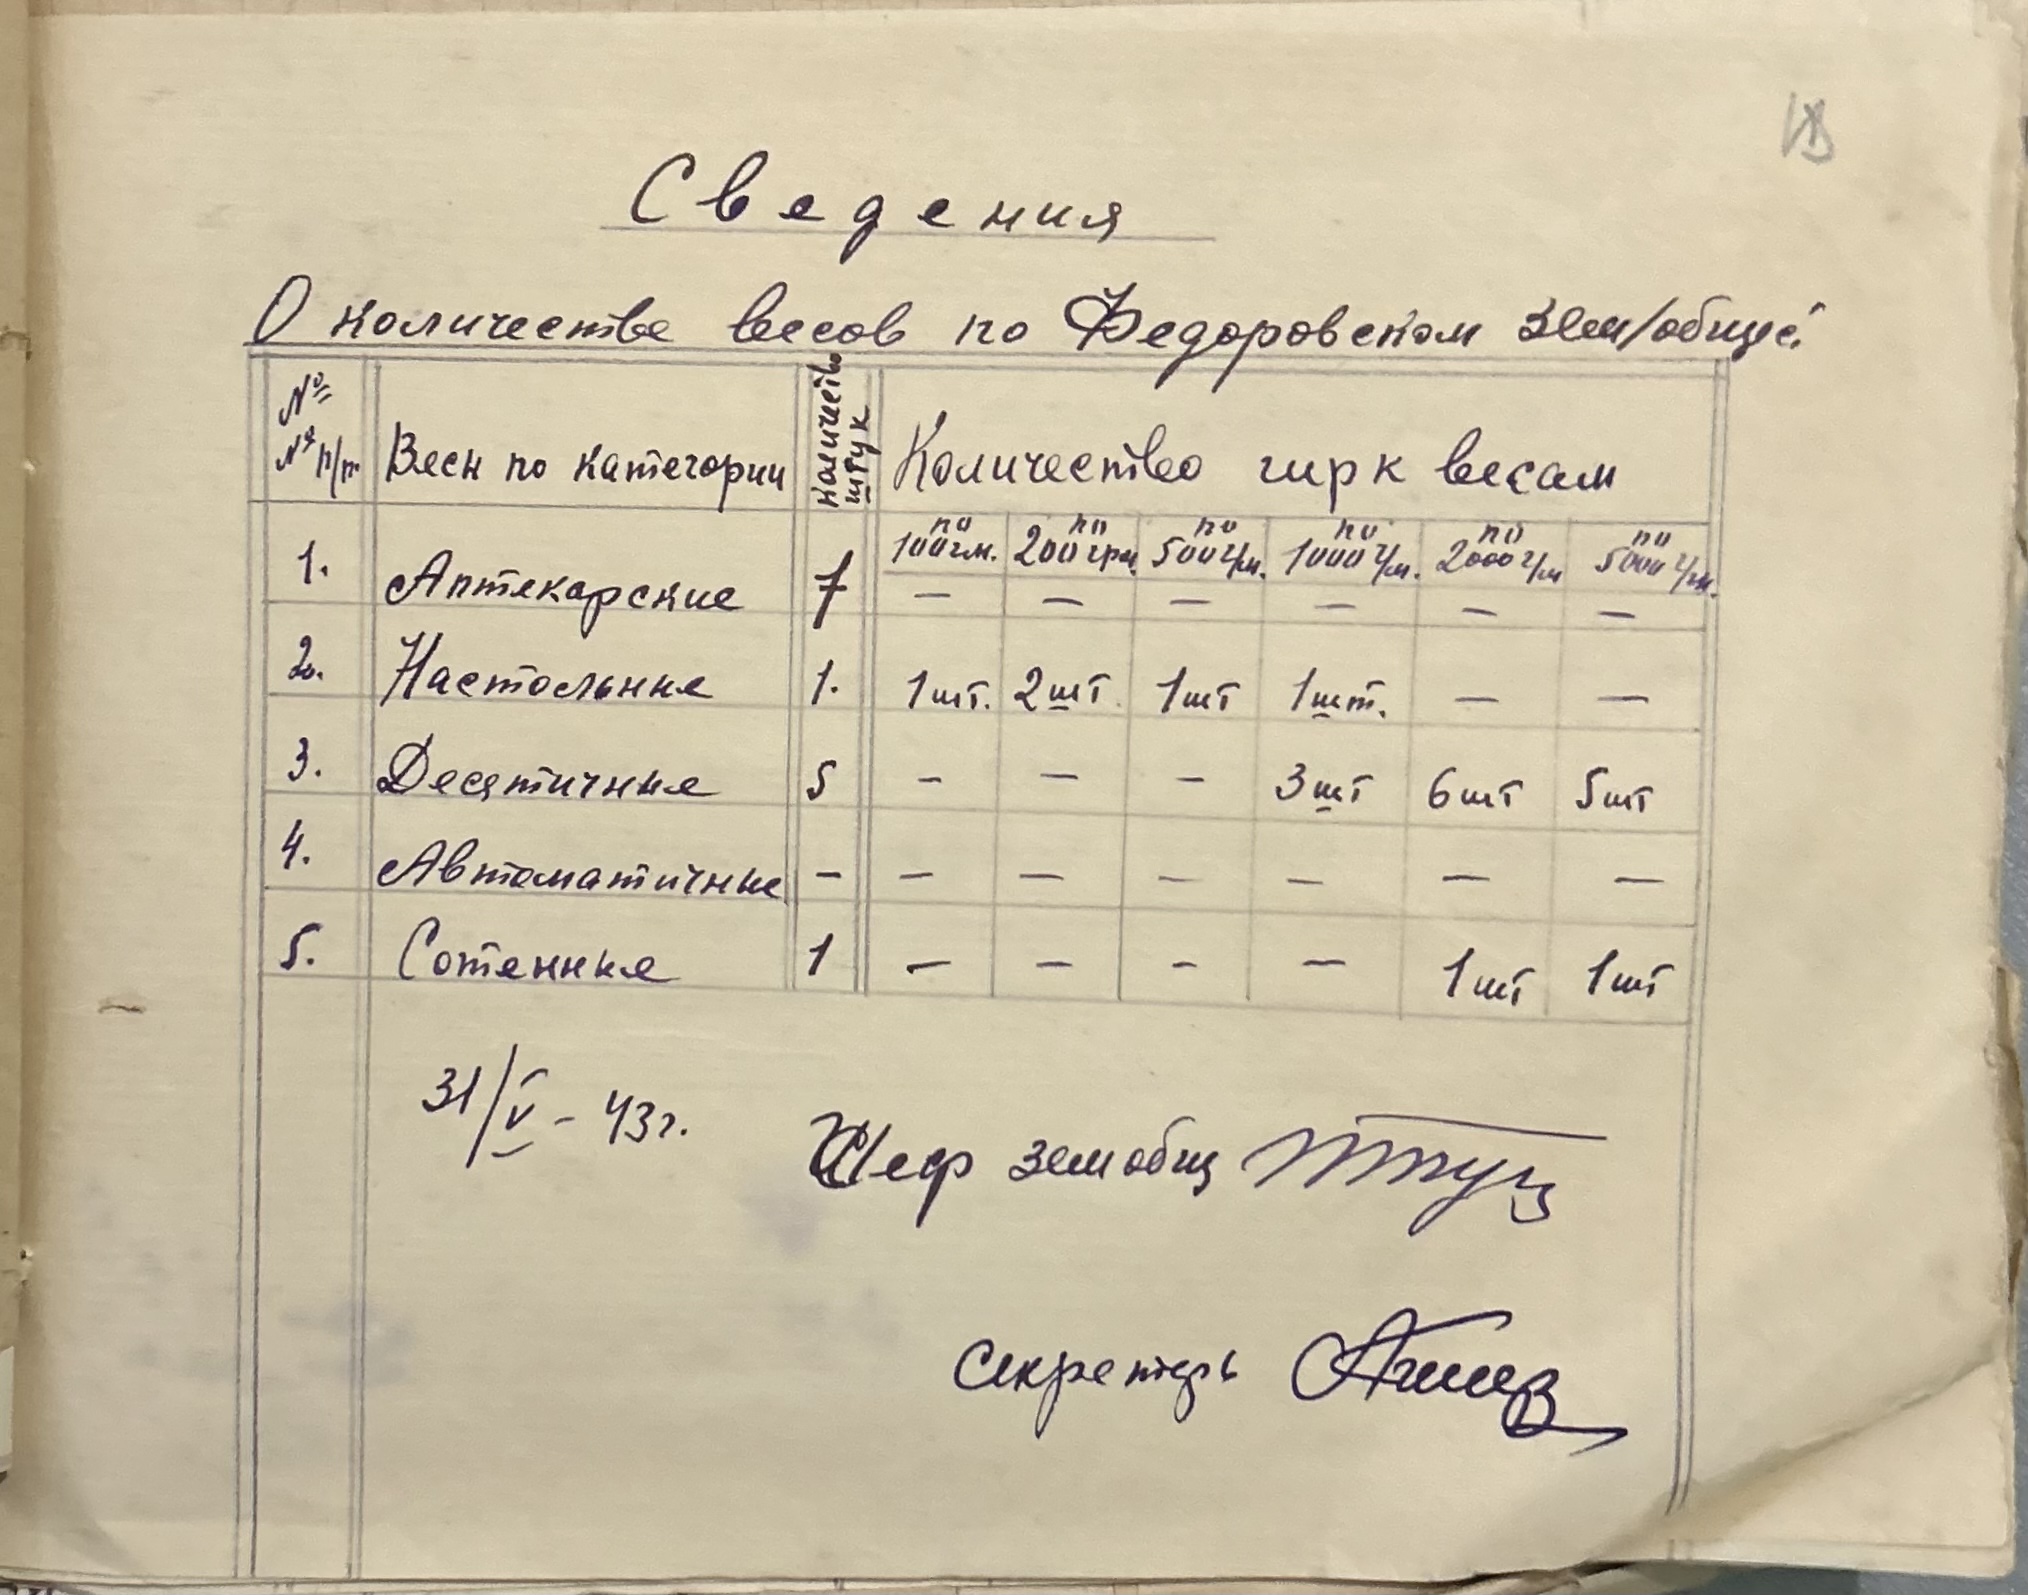 Сведения
О количестве весов по Федоровском зем/общ.
№ № п/п. Весы по категории количество штук Количество гирк весам
по 100 гм. по 200 грм. по 500 г/м. по 1000 г/м. по 2000 г/м по 5000 г/м.
1. Аптекарские 7 — — — — — —
2. Настольные 1. 1 шт. 2 шт 1 шт 1 шт. — —
3. Десятичные 5 — — — 3 шт 6 шт 5 шт
4. Автоматичные — — — — — — —
5. Сотенные 1 — — — — 1 шт 1 шт
31/V – 43 г.
Шеф земобщ
Секретерь